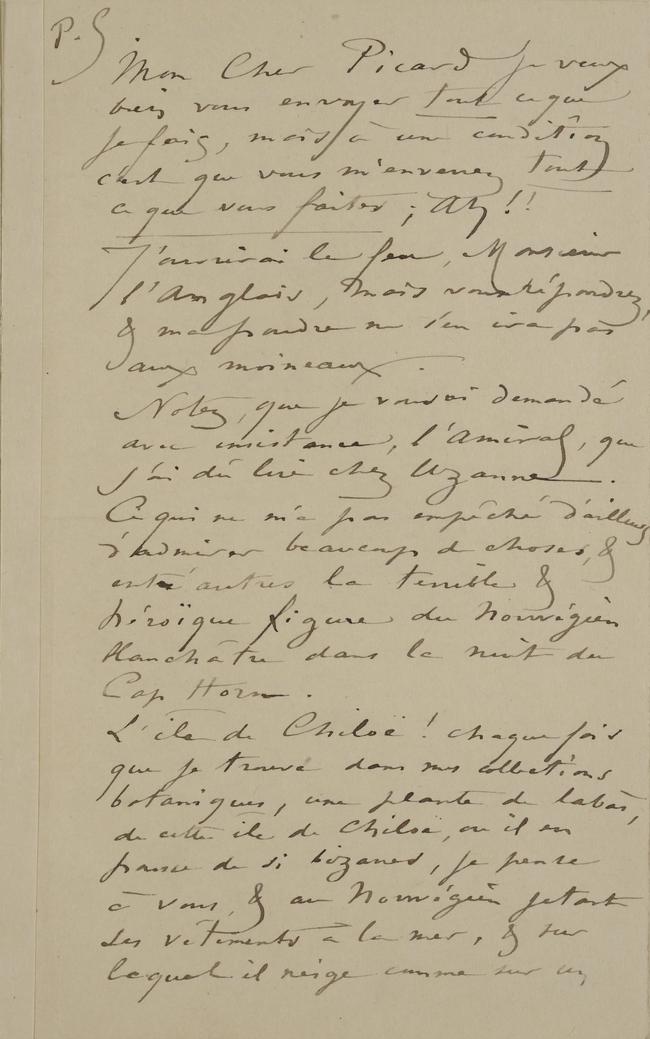 P.S
Mon Cher Picard je veux
bien vous envoyer tout ce que
je fais, mais à une condition
c'est que vous m'enverrez tout
ce que vous faites ; Ah !!
J'ouvrirai le feu, Monsieur
l'Anglais, mais vous répondrez,
& ma poudre ne s'en ira pas
aux moineaux.
Notez, que je vous ai demandé
avec insistance, l'Amiral, que
j'ai dû lire chez Uzanne.
Ce qui ne m'a pas empêché d'ailleurs
d'admirer beaucoup de choses, &
entr'autres la terrible &
héroïque figure du Norwégien
blanchâtre dans la nuit du
Cap Horn.
L'île de Chiloë ! chaque fois
que je trouve dans mes collections
botaniques, une plante de labas,
de cette île de Chiloë, où il en
pousse de si bizarres, je pense
à vous, & au Norwégien jetant
ses vêtements à la mer, & sur
lequel il neige comme sur un